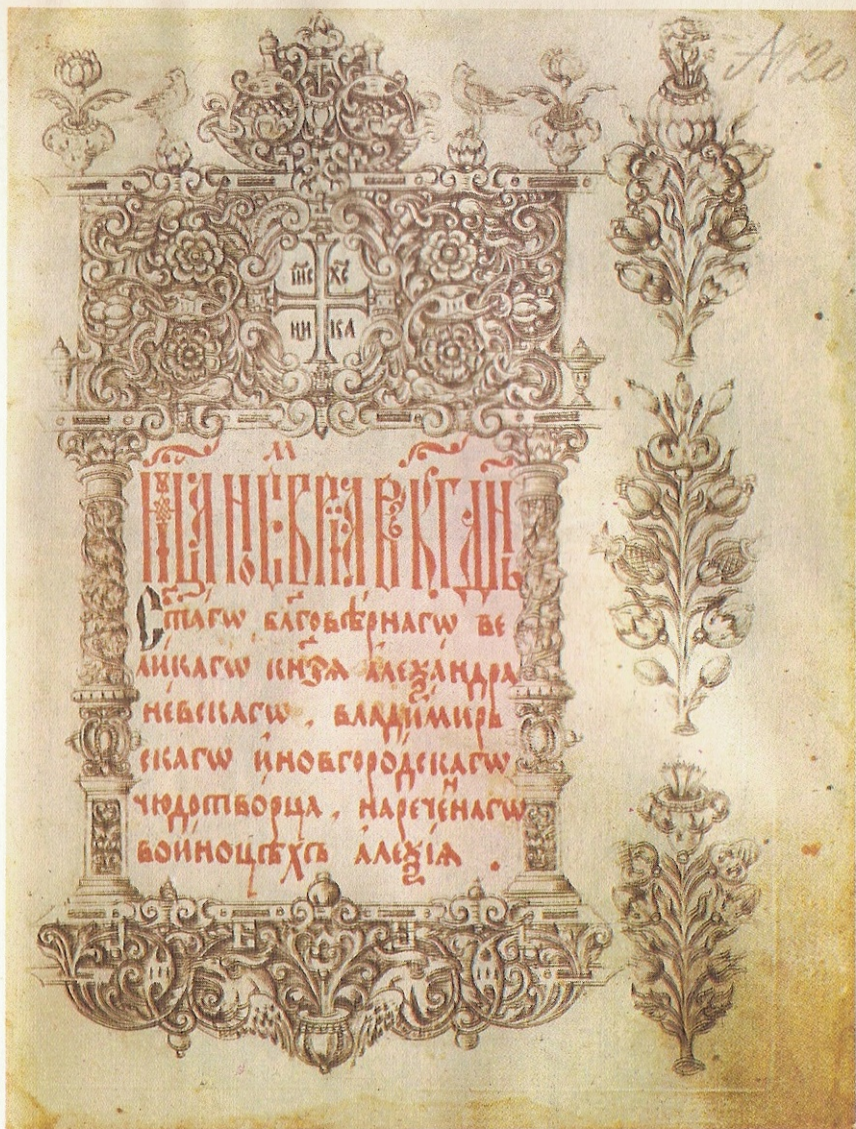 № 20
І҃с Хе҃
НИ КА
Мц҃а ноембрїа въ к҃г д҃нь
Ст҃агѡ бл҃говѣрнагѡ ве
ли́кагѡ кн҃зѧ алеѯа́ндра
не́вскагѡ, влади́мирь
скагѡ и҆новгоро́дскагѡ
чюдотво́рца, нарече́ннагѡ
во и҆ноцѣхъ алеѯі́ѧ.